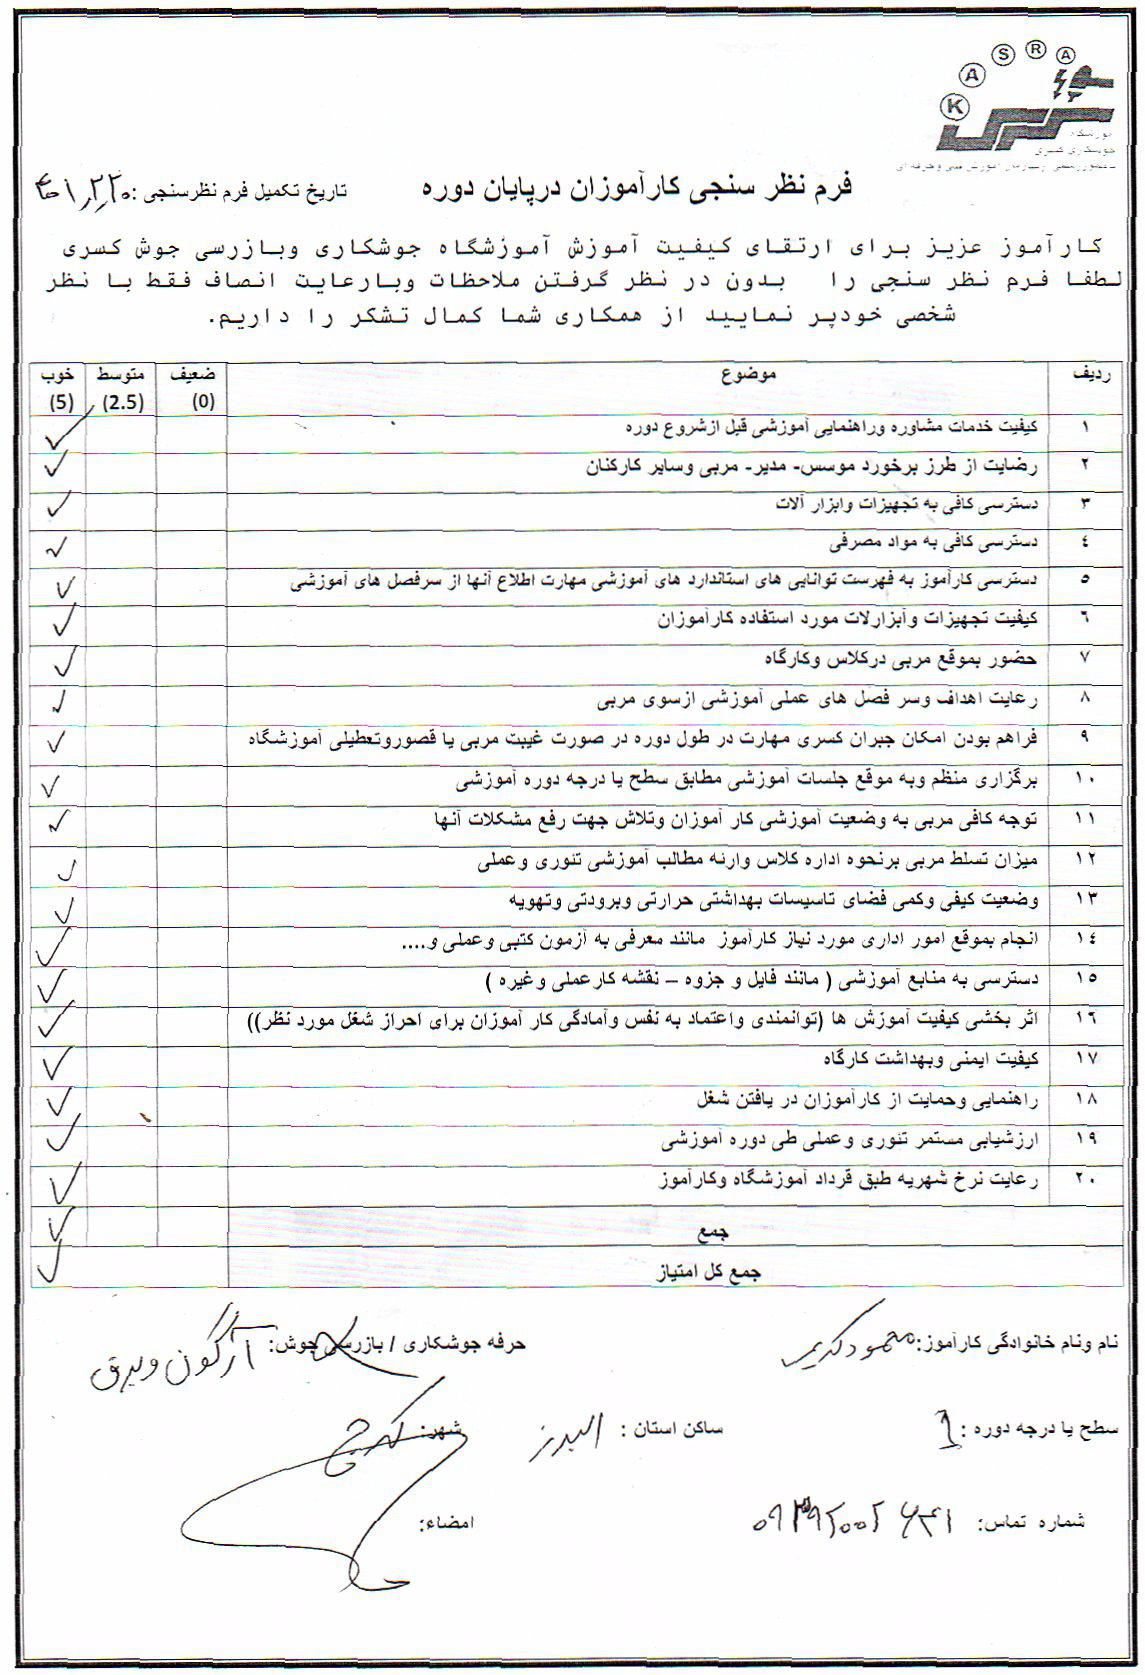 K A S R A
آموزشگاه
جوشکاری کسری
فرم نظر سنجی کارآموزان درپایان دوره
تاریخ تکمیل فرم نظرسنجی :
کارآموز عزیز برای ارتقای کیفیت آموزش آموزشگاه جوشکاری وبازرسی جوش کسری
لطفا فرم نظر سنجی را بدون در نظر گرفتن ملاحظات وبارعایت انصاف فقط با نظر
شخصی خودپر نمایید از همکاری شما کمال تشکر را داریم.
ردیف موضوع ضعیف (0) متوسط (2.5) خوب (5)
۱ کیفیت خدمات مشاوره وراهنمایی آموزشی قبل ازشروع دوره ✓
۲ رضایت از طرز برخورد موسس- مدیر- مربی وسایر کارکنان ✓
۳ دسترسی کافی به تجهیزات وابزار آلات ✓
٤ دسترسی کافی به مواد مصرفی ✓
٥ دسترسی کارآموز به فهرست توانایی های استاندارد های آموزشی مهارت اطلاع آنها از سرفصل های آموزشی ✓
٦ کیفیت تجهیزات وآبزارلات مورد استفاده کارآموزان ✓
۷ حضور بموقع مربی درکلاس وکارگاه ✓
۸ رعایت اهداف وسر فصل های عملی آموزشی ازسوی مربی ✓
۹ فراهم بودن امکان جبران کسری مهارت در طول دوره در صورت غیبت مربی یا قصوروتعطیلی آموزشگاه ✓
۱۰ برگزاری منظم وبه موقع جلسات آموزشی مطابق سطح یا درجه دوره آموزشی ✓
۱۱ توجه کافی مربی به وضعیت آموزشی کار آموزان وتلاش جهت رفع مشکلات آنها ✓
۱۲ میزان تسلط مربی برنحوه اداره کلاس وارئه مطالب آموزشی تئوری وعملی ✓
۱۳ وضعیت کیفی وکمی فضای تاسیسات بهداشتی حرارتی وبرودتی وتهویه ✓
۱٤ انجام بموقع امور اداری مورد نیاز کارآموز مانند معرفی به آزمون کتبی وعملی و.... ✓
۱٥ دسترسی به منابع آموزشی ( مانند فایل و جزوه – نقشه کارعملی وغیره ) ✓
۱٦ اثر بخشی کیفیت آموزش ها (توانمندی واعتماد به نفس وآمادگی کار آموزان برای احراز شغل مورد نظر)) ✓
۱۷ کیفیت ایمنی وبهداشت کارگاه ✓
۱۸ راهنمایی وحمایت از کارآموزان در یافتن شغل ✓
۱۹ ارزشیابی مستمر تئوری وعملی طی دوره آموزشی ✓
۲۰ رعایت نرخ شهریه طبق قرداد آموزشگاه وکارآموز ✓
جمع ✓
جمع کل امتیاز ✓
نام ونام خانوادگی کارآموز: محمود کریمی حرفه جوشکاری / بازرسی جوش: آرگون وبرق
سطح یا درجه دوره : ساکن استان : البرز شهر: کرج
شماره تماس: امضاء: